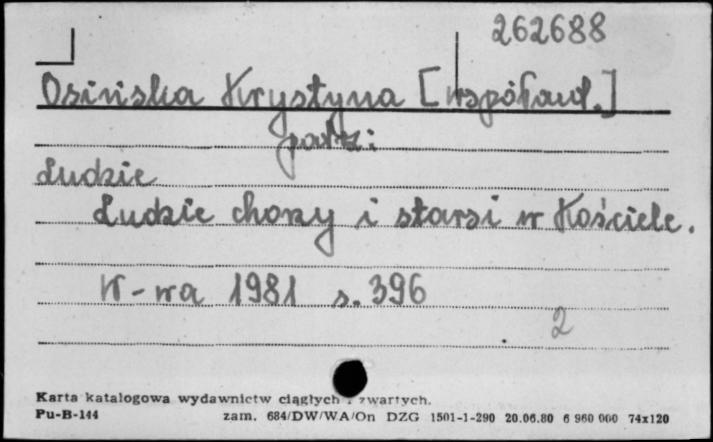 262688
Osińska Krystyna [współaut.]
patrz:
Ludzie
Ludzie chorzy i starsi w Kościele.
W-wa 1981 s. 396
2
Karta katalogowa wydawnictw ciągłych i zwartych.
Pu-B-144 zam. 684/DW/WA/On DZG 1501-1-290 20.06.80 6 960 000 74x120